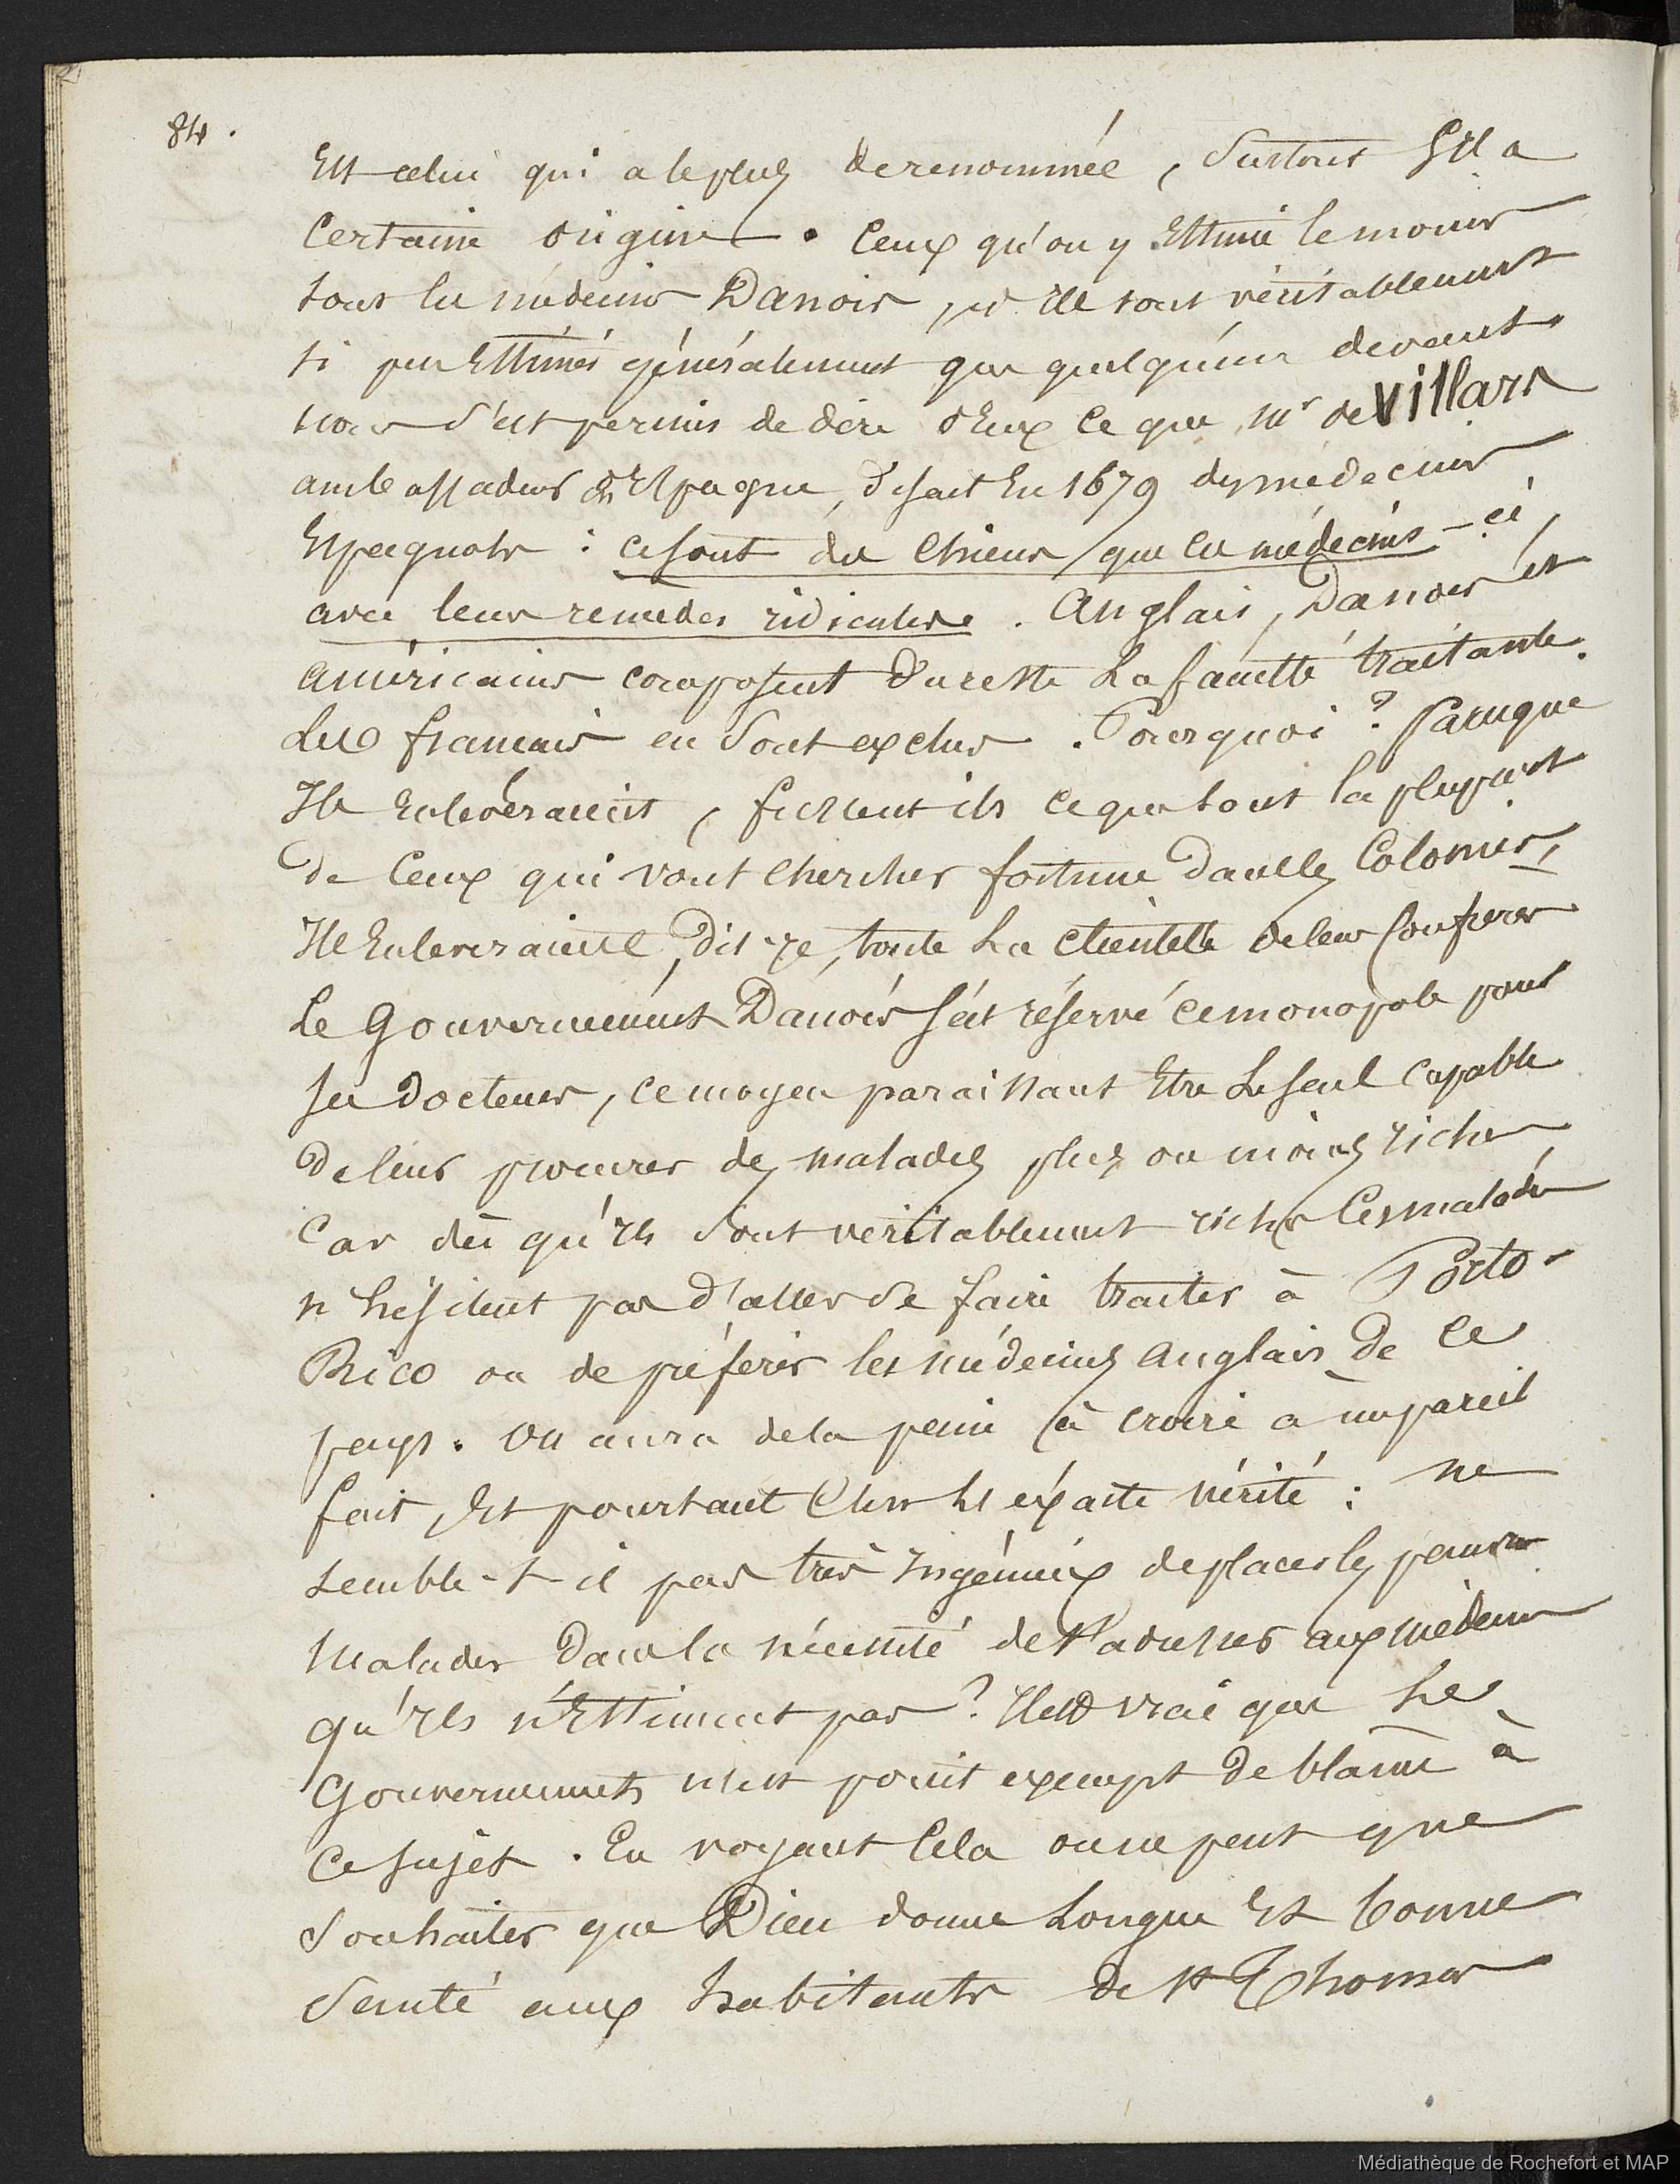 84.
Est celui qui a le plus de renommée, surtout s'il a
certaine origine. Ceux qu'on y Estime le moins
sont les médecins Danois, et ils sont véritablement
si peu Estimés généralement que quelqu'un devant
nous s'est permis de dire d'Eux ce que Mr de Villars
ambassadeur d'Espagne, disait En 1679 des médecins
Espagnols : ce sont des chiens que ces médecins-ci,
avec leurs remèdes ridicules. Anglais, Danois et
américains composent du reste la faculté traitante.
Les français en sont exclus. Pourquoi ? Parceque
Ils Enlèveraient, fussent ils ce que sont la plupart
de ceux qui vont chercher fortune dans les Colonies,
Ils Enleveraient, dis-je, toute la clientelle de leurs Confreres
Le Gouvernement Danois s'est réservé ce monopole pour
ses Docteurs, ce moyen paraissant Etre le seul capable
de leur procurer des malades plus ou moins riches
Car dès qu'ils sont veritablement riches les malades
n'hésitent pas d'aller se faire traiter à Porto-
Rico ou de préférer les médecins anglais de ce
pays. On aura de la peine à croire à un pareil
fait, Et pourtant c'est l'exacte vérité : ne
semble-t-il pas très Ingénieux de placer les pauvres
malades dans la nécessité de s'adresser aux médecins
qu'ils n'Estiment pas ? Il est vrai que le
Gouvernement n'est point exempt de blâme à
ce sujet. En voyant cela on ne peut que
souhaiter que Dieu donne longue Et bonne
Santé aux habitants de St Thomas
Médiathèque de Rochefort et MAP